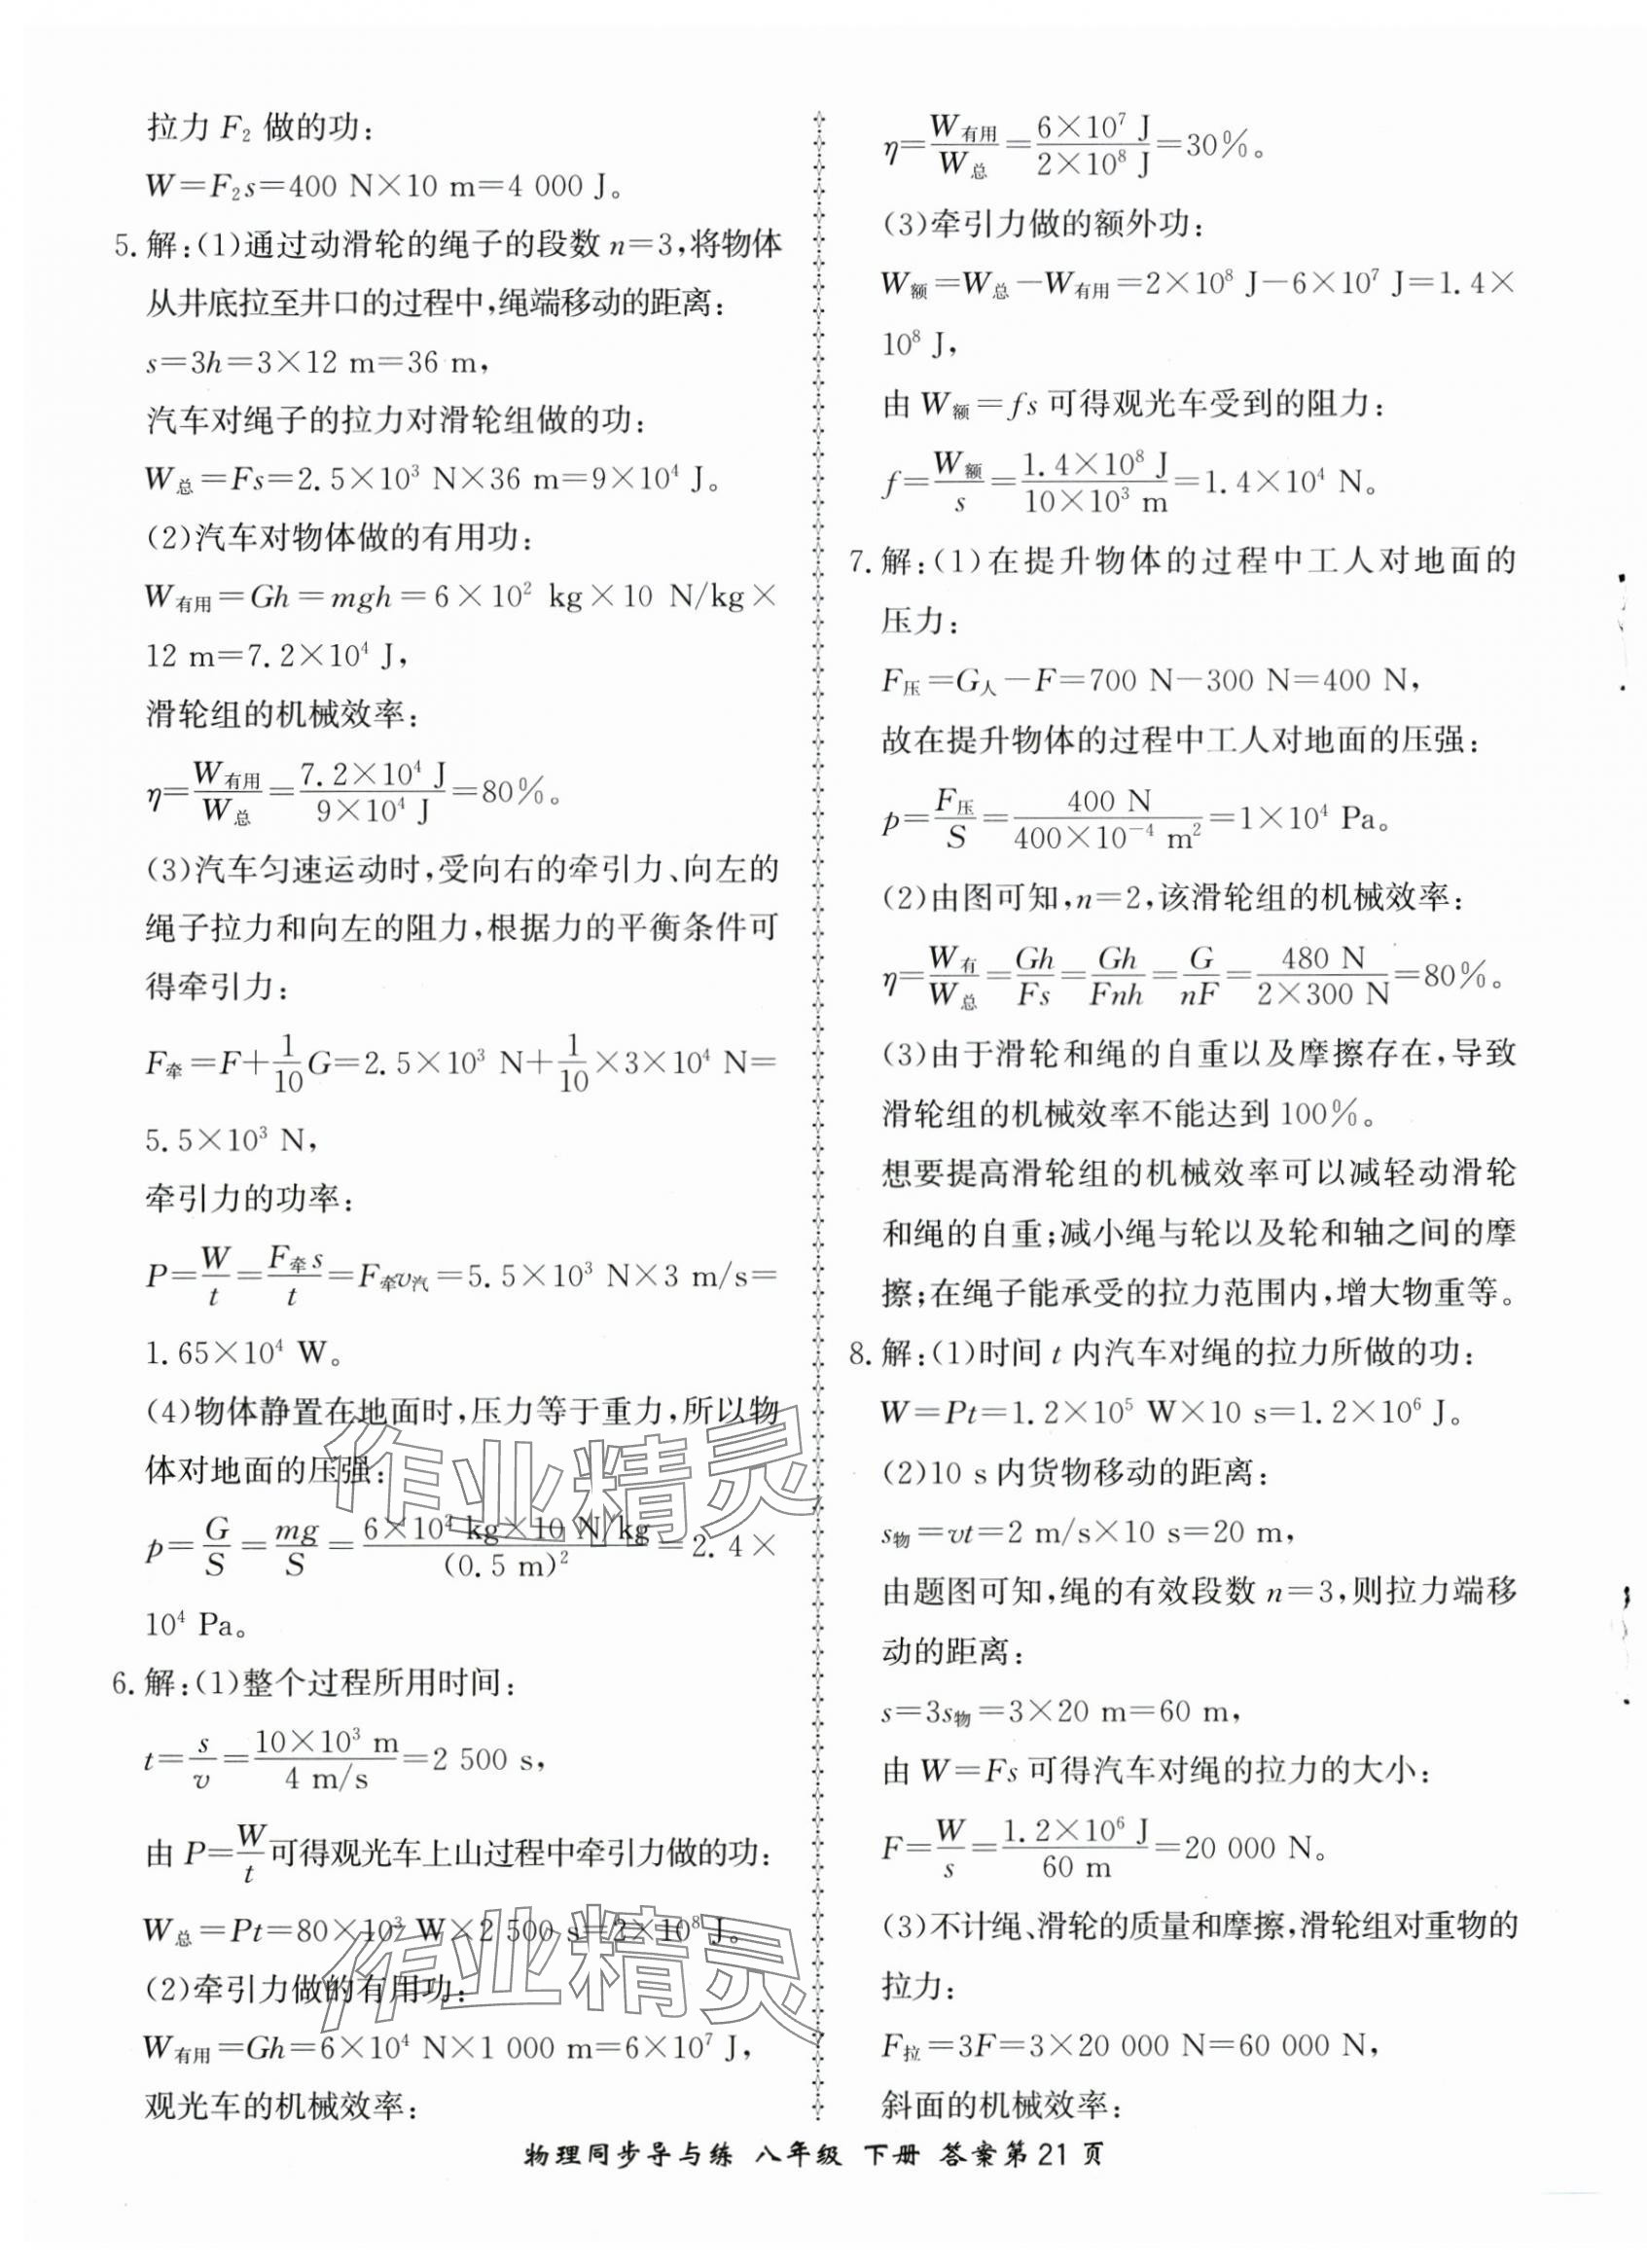 拉力 F₂ 做的功：
W=F₂s=400 N×10 m=4 000 J。
5. 解：(1)通过动滑轮的绳子的段数 n=3，将物体
从井底拉至井口的过程中，绳端移动的距离：
s=3h=3×12 m=36 m，
汽车对绳子的拉力对滑轮组做的功：
W总=Fs=2.5×10³ N×36 m=9×10⁴ J。
(2)汽车对物体做的有用功：
W有用=Gh=mgh=6×10² kg×10 N/kg×
12 m=7.2×10⁴ J，
滑轮组的机械效率：
η=W有用/W总=7.2×10⁴ J/9×10⁴ J=80%。
(3)汽车匀速运动时，受向右的牵引力、向左的
绳子拉力和向左的阻力，根据力的平衡条件可
得牵引力：
F牵=F+1/10G=2.5×10³ N+1/10×3×10⁴ N=
5.5×10³ N，
牵引力的功率：
P=W/t=F牵s/t=F牵v汽=5.5×10³ N×3 m/s=
1.65×10⁴ W。
(4)物体静置在地面时，压力等于重力，所以物
体对地面的压强：
p=G/S=mg/S=6×10² kg×10 N/kg/(0.5 m)²=2.4×
10⁴ Pa。
6. 解：(1)整个过程所用时间：
t=s/v=10×10³ m/4 m/s=2 500 s，
由 P=W/t可得观光车上山过程中牵引力做的功：
W总=Pt=80×10³ W×2 500 s=2×10⁸ J。
(2)牵引力做的有用功：
W有用=Gh=6×10⁴ N×1 000 m=6×10⁷ J，
观光车的机械效率：
η=W有用/W总=6×10⁷ J/2×10⁸ J=30%。
(3)牵引力做的额外功：
W额=W总−W有用=2×10⁸ J−6×10⁷ J=1.4×
10⁸ J，
由 W额=fs 可得观光车受到的阻力：
f=W额/s=1.4×10⁸ J/10×10³ m=1.4×10⁴ N。
7. 解：(1)在提升物体的过程中工人对地面的
压力：
F压=G人−F=700 N−300 N=400 N，
故在提升物体的过程中工人对地面的压强：
p=F压/S=400 N/400×10⁻⁴ m²=1×10⁴ Pa。
(2)由图可知，n=2，该滑轮组的机械效率：
η=W有/W总=Gh/Fs=Gh/Fnh=G/nF=480 N/2×300 N=80%。
(3)由于滑轮和绳的自重以及摩擦存在，导致
滑轮组的机械效率不能达到 100%。
想要提高滑轮组的机械效率可以减轻动滑轮
和绳的自重；减小绳与轮以及轮和轴之间的摩
擦；在绳子能承受的拉力范围内，增大物重等。
8. 解：(1)时间 t 内汽车对绳的拉力所做的功：
W=Pt=1.2×10⁵ W×10 s=1.2×10⁶ J。
(2)10 s 内货物移动的距离：
s物=vt=2 m/s×10 s=20 m，
由题图可知，绳的有效段数 n=3，则拉力端移
动的距离：
s=3s物=3×20 m=60 m，
由 W=Fs 可得汽车对绳的拉力的大小：
F=W/s=1.2×10⁶ J/60 m=20 000 N。
(3)不计绳、滑轮的质量和摩擦，滑轮组对重物的
拉力：
F拉=3F=3×20 000 N=60 000 N，
斜面的机械效率：
作业精灵
作业精灵
物理同步导与练 八年级 下册 答案第21页